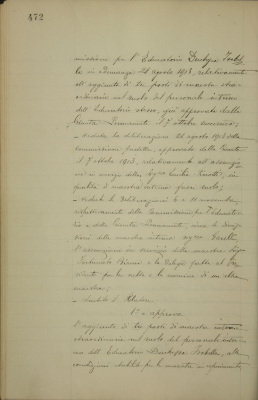 472
missione per l'Educatorio Duchessa Isabel-
la in adunanza 21 agosto 1903, relativamente
all'aggiunta di tre posti di maestra stra-
ordinaria nel ruolo del personale interno
dell'Educatorio stesso, già approvata dalla
Giunta Permanente il 7 ottobre successivo;
- Veduta la deliberazione 21 agosto 1903 della
commissione predetta, approvata dalla Giunta
il 7 ottobre 1903, relativamente all'assunzio-
ne in servizio della Sig.na Emilia, in
qualità di maestra interna fuori ruolo;
- Vedute le deliberazioni 6 e 11 novembre,
rispettivamente della Commissione per l'Educato-
rio e della Giunta Permanente, circa le dimis-
sioni della maestra interna sig.na
l'assunzione in servizio della maestra Sig.na
e la delega fatta al Pre-
sidente per la scelta e la nomina di un'altra
maestra;
- Sentito il Relatore
1° - approva
l'aggiunta di tre posti di maestra interna
straordinaria nel ruolo del personale inter-
no dell'Educatorio Duchessa Isabella, alle
condizioni stabilite per le maestre